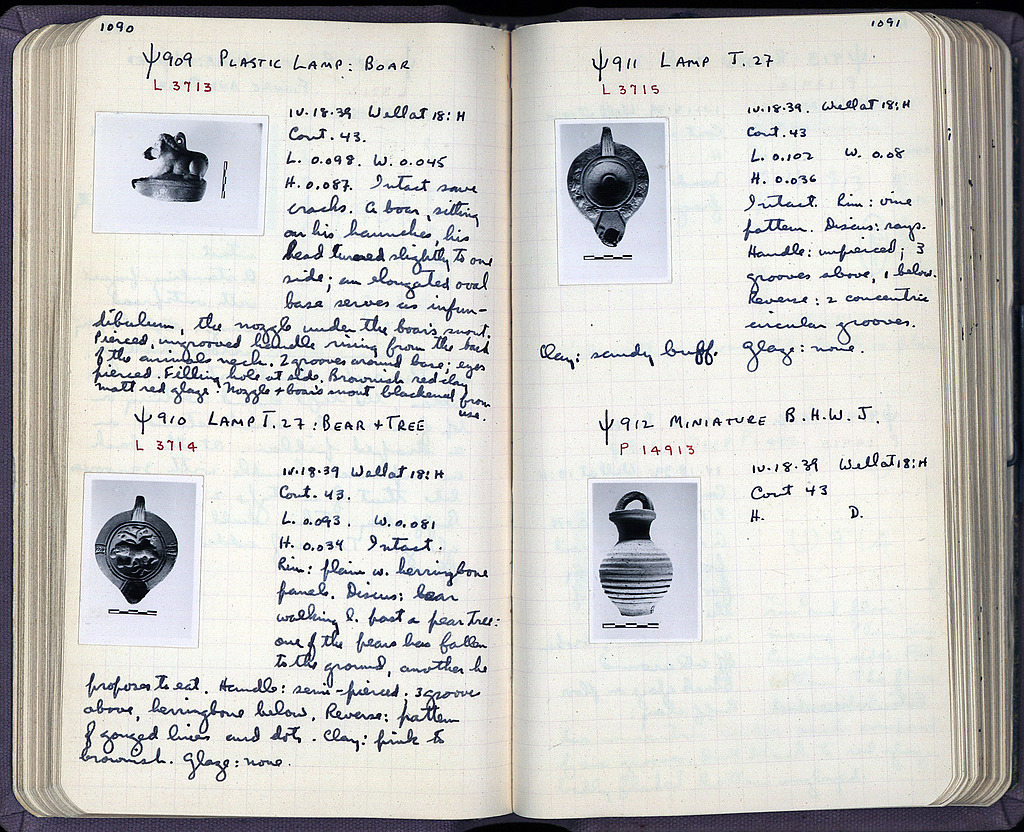 1090
Ψ909 PLASTIC LAMP: BOAR
L 3713
IV.18.39 Well at 18:H
Cont. 43.
L. 0.098. W. 0.045
H. 0.087. Intact save
cracks. A boar, sitting
on his haunches, his
head turned slightly to one
side; an elongated oval
base serves as infun-
dibulum, the nozzle under the boar's snout.
Pierced, ungrooved handle rising from the back
of the animal's neck. 2 grooves around base; eyes
pierced. Filling hole at side. Brownish red clay
matt red glaze. Nozzle + boar's snout blackened from
use.
Ψ910 LAMP T.27: BEAR + TREE
L 3714
IV.18.39 Well at 18:H
Cont. 43.
L. 0.093. W. 0.081
H. 0.034 Intact.
Rim: plain w. herringbone
panels. Discus: bear
walking l. past a pear tree:
one of the pears has fallen
to the ground, another he
proposes to eat. Handle: semi-pierced. 3 grooves
above, herringbone below. Reverse: pattern
of gouged lines and dots. Clay: pink to
brownish. Glaze: none.
1091
Ψ911 LAMP T.27
L 3715
IV.18.39. Well at 18:H
Cont. 43
L. 0.102 W. 0.08
H. 0.036
Intact. Rim: vine
pattern. Discus: rays.
Handle: unpierced; 3
grooves above, 1 below.
Reverse: 2 concentric
circular grooves.
Clay: sandy buff. Glaze: none.
Ψ912 MINIATURE B.H.W.J.
P 14913
IV.18.39 Well at 18:H
Cont 43
H. D.